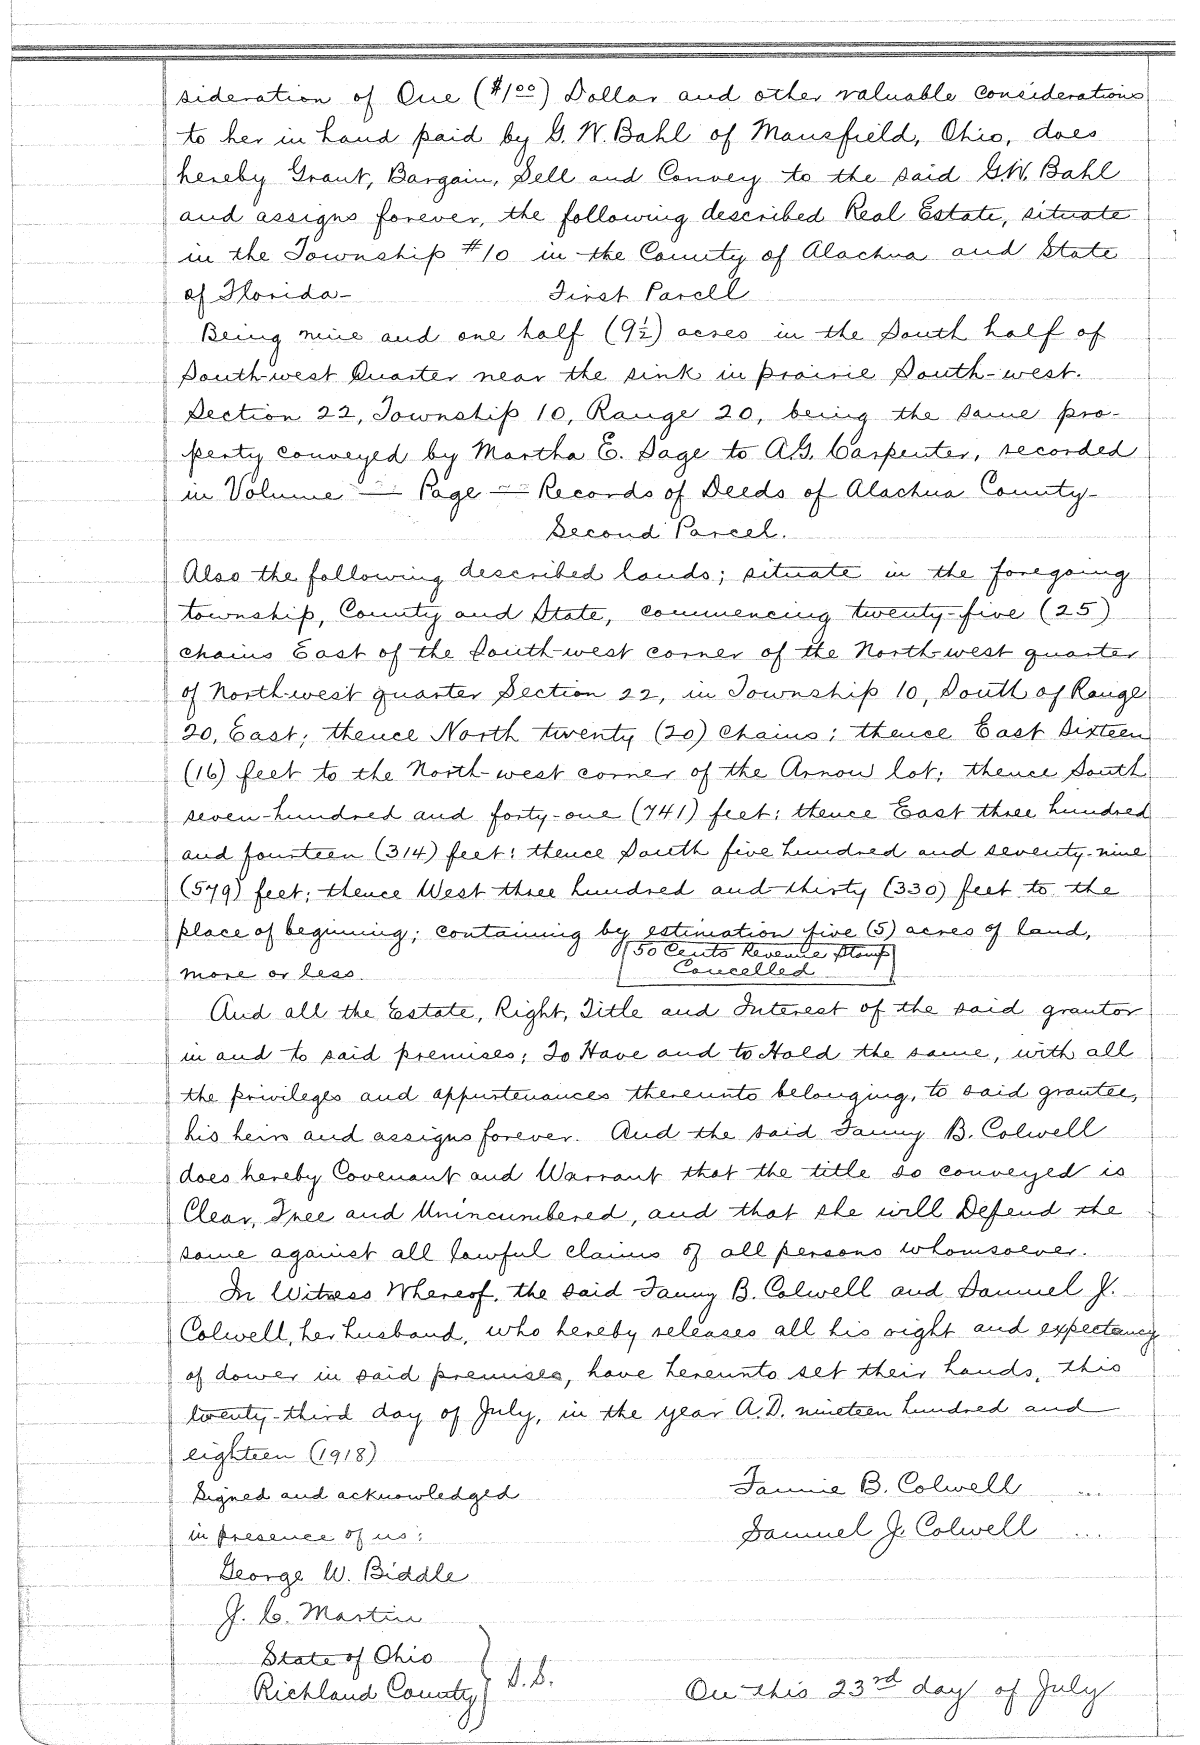 sideration of One ($1.00) Dollar and other valuable considerations
to her in hand paid by G. W. Bahl of Mansfield, Ohio, does
hereby Grant, Bargain, Sell and Convey to the said G.W. Bahl
and assigns forever, the following described Real Estate, situate
in the Township #10 in the County of Alachua and State
of Florida- First Parcell
Being nine and one half (9½) acres in the South half of
South-west Quarter near the sink in prairie South-west.
Section 22, Township 10, Range 20, being the same pro-
perty conveyed by Martha E. Sage to A.G. Carpenter, recorded
in Volume — Page — Records of Deeds of Alachua County-
Second Parcel.
Also the following described lands; situate in the foregoing
township, County and State, commencing twenty-five (25)
chains East of the South-west corner of the North-west quarter
of North-west quarter Section 22, in Township 10, South of Range
20, East; thence North twenty (20) Chains; thence East Sixteen
(16) feet to the North-west corner of the Arnow lot; thence South
seven-hundred and forty-one (741) feet; thence East three hundred
and fourteen (314) feet; thence South five hundred and seventy-nine
(579) feet; thence West three hundred and thirty (330) feet to the
place of beginning; containing by estimation five (5) acres of land,
more or less. (50 Cents Revenue Stamp
Cancelled)
And all the Estate, Right, Title and Interest of the said grantor
in and to said premises; To Have and to Hold the same, with all
the privileges and appurtenances thereunto belonging, to said grantee,
his heirs and assigns forever. And the said Fanny B. Colwell
does hereby Covenant and Warrant that the title so conveyed is
Clear, Free and Unincumbered, and that she will Defend the
same against all lawful claims of all persons whomsoever.
In Witness Whereof, the said Fanny B. Colwell and Samuel J.
Colwell, her husband, who hereby releases all his right and expectancy
of dower in said premises, have hereunto set their hands, this
twenty-third day of July, in the year A.D. nineteen hundred and
eighteen (1918)
Signed and acknowledged Fannie B. Colwell ...
in presence of us: Samuel J. Colwell ...
George W. Biddle
J. C. Martin
State of Ohio
Richland County} S.S. On this 23rd day of July